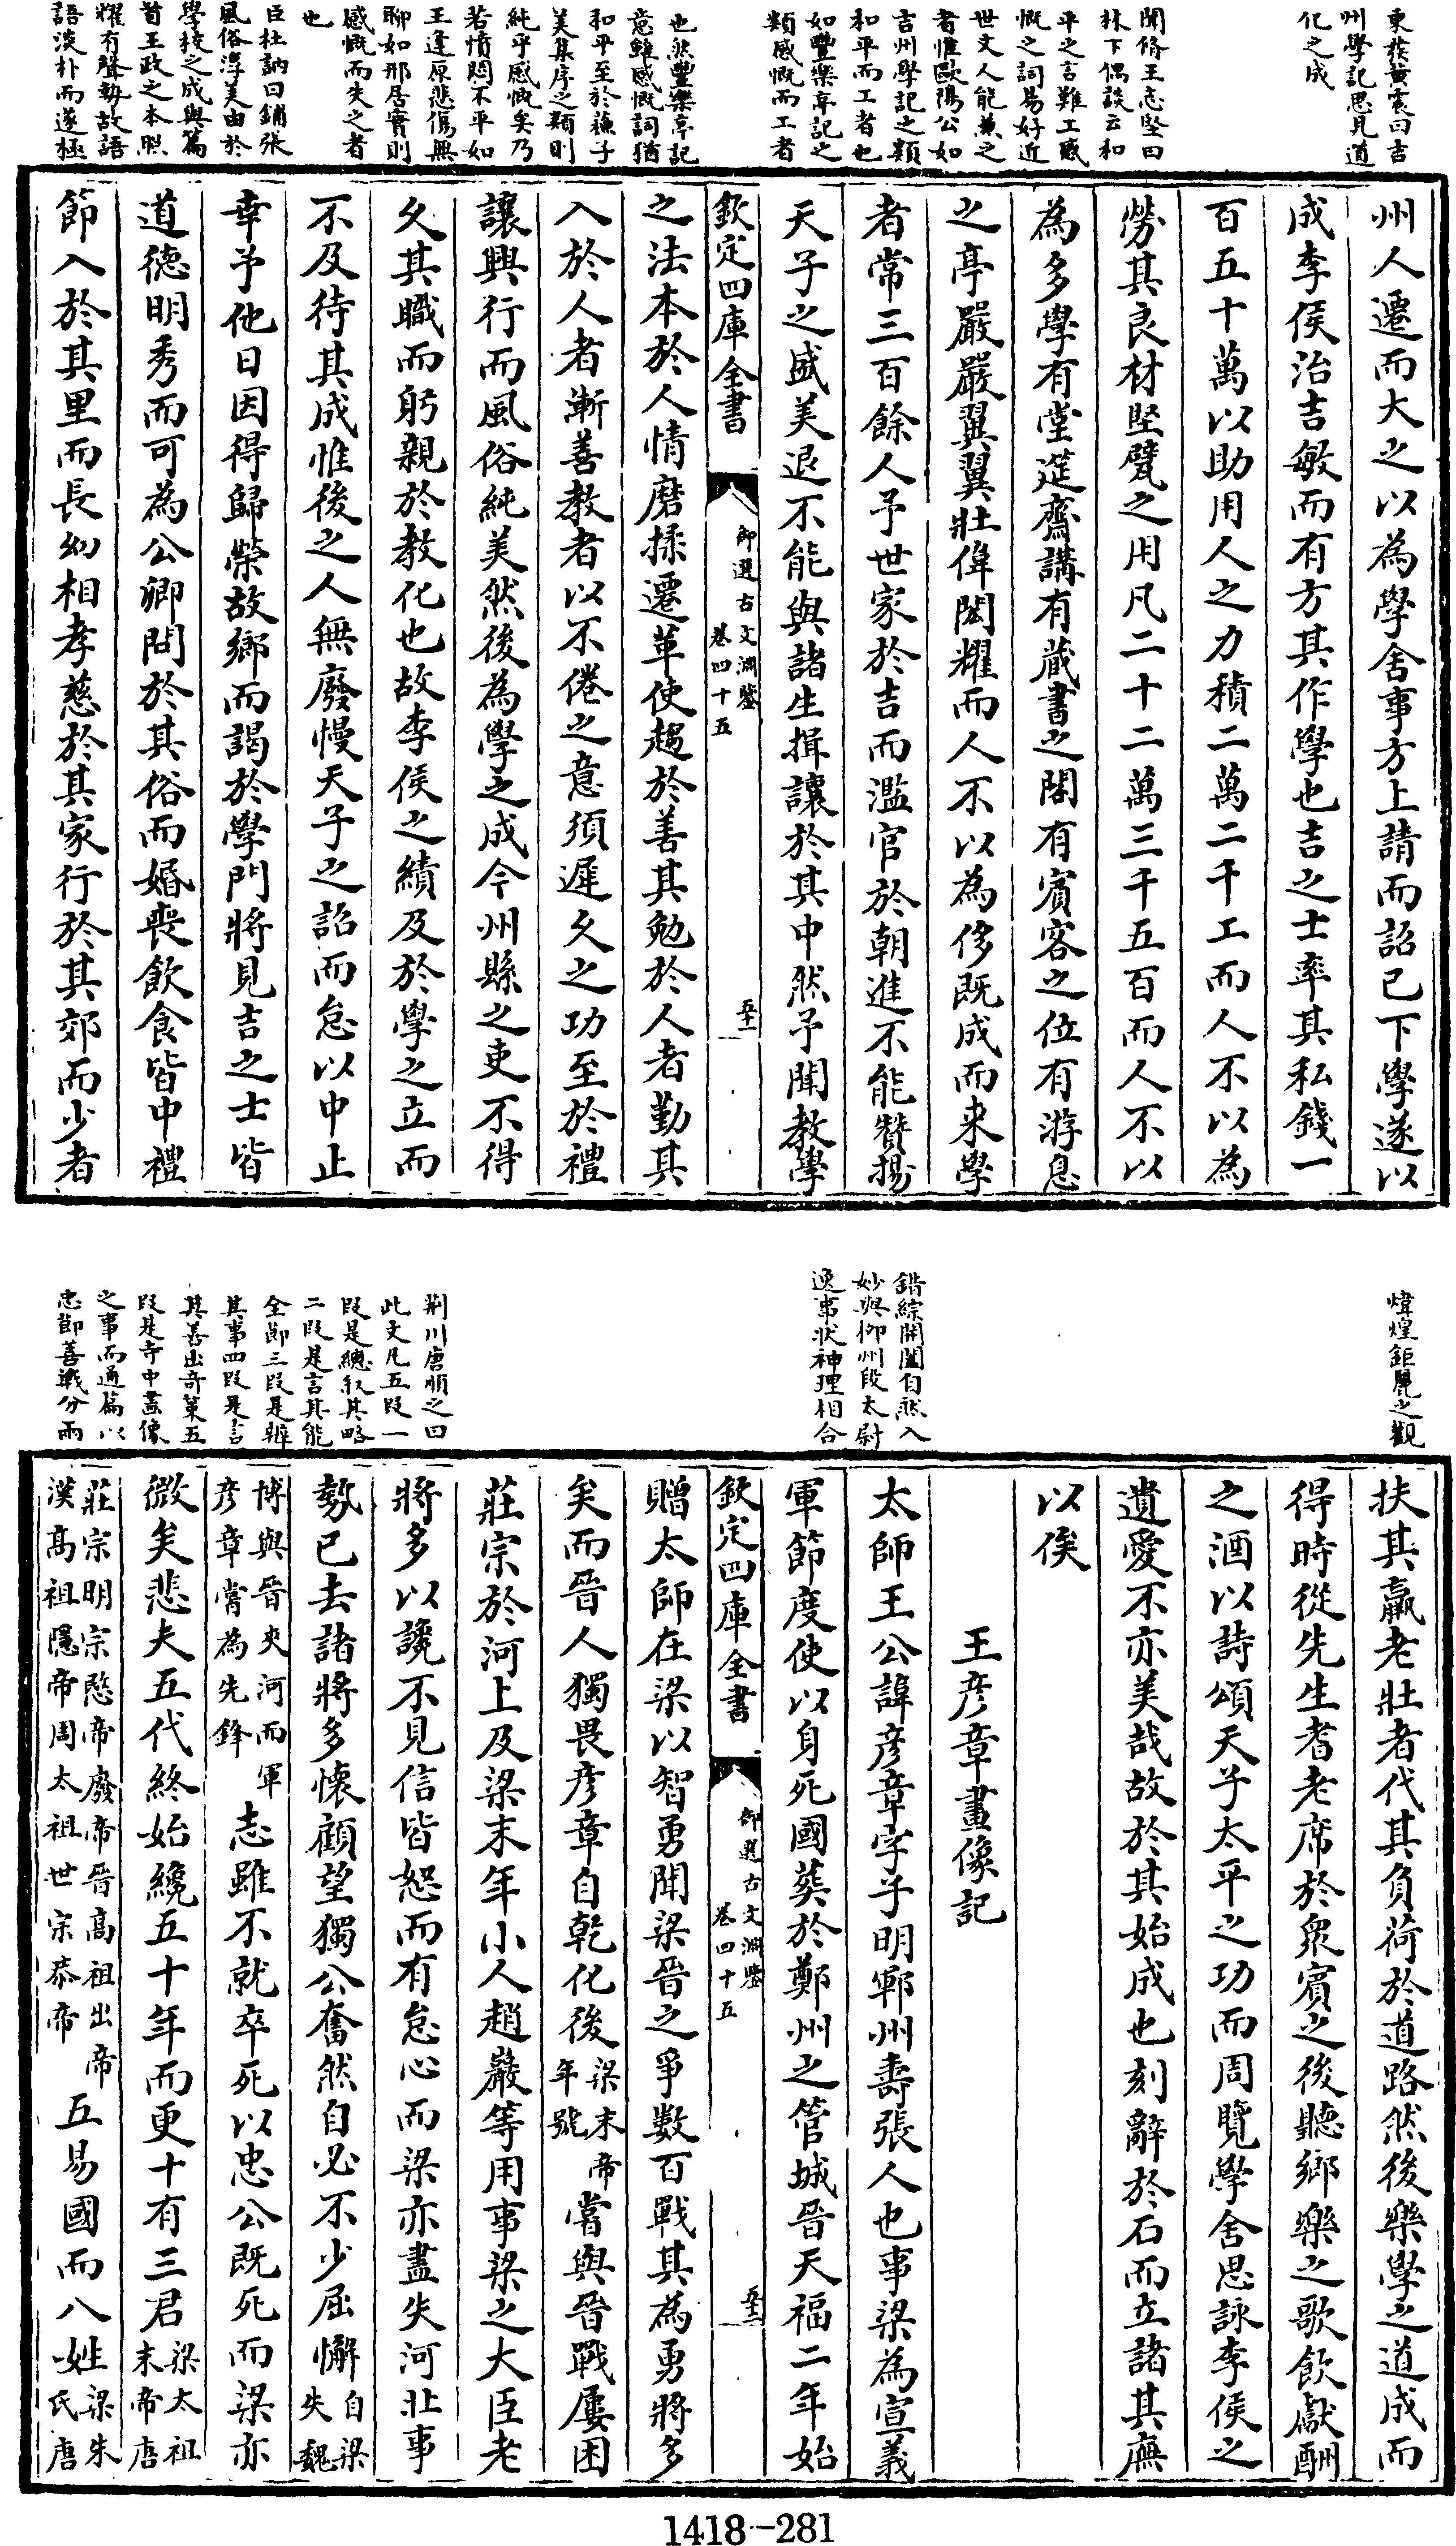 東發黃震曰吉
州學記思見道
化之成
聞脩王志堅曰
林下偶談云和
平之言難工感
慨之詞易好近
世文人能兼之
者惟歐陽公如
吉州學記之類
和平而工者也
如豐樂亭記之
類感慨而工者
也然豐樂亭記
意雖感慨詞猶
和平至於蘓子
美集序之類則
純乎感慨矣乃
若憤悶不平如
王逢原悲傷無
聊如邢居實則
感慨而失之者
也
臣杜訥曰鋪張
風俗淳美由於
學校之成與篇
首王政之本照
耀有聲埶故語
語淡朴而遂極
州人遷而大之以為學舍事方上請而詔已下學遂以
成李侯治吉敏而有方其作學也吉之士率其私錢一
百五十萬以助用人之力積二萬二千工而人不以為
勞其良材堅甓之用凡二十二萬三千五百而人不以
為多學有堂筵齋講有藏書之閣有賓客之位有游息
之亭嚴嚴翼翼壯偉閎耀而人不以為侈既成而来學
者常三百餘人予世家於吉而濫官於朝進不能贊揚
天子之盛美退不能與諸生揖讓於其中然予聞教學
欽定四庫全書
御選古文淵鑒
卷四十五
五十一
之法本於人情磨揉遷革使趨於善其勉於人者勤其
入於人者漸善教者以不倦之意須遲久之功至於禮
讓興行而風俗純美然後為學之成今州縣之吏不得
久其職而躬親於教化也故李侯之績及於學之立而
不及待其成惟後之人無廢慢天子之詔而怠以中止
幸予他日因得歸榮故鄉而謁於學門將見吉之士皆
道德明秀而可為公卿問於其俗而婚喪飲食皆中禮
節入於其里而長幼相孝慈於其家行於其郊而少者
煒煌鉅麗之觀
錯綜開闔自然入
妙與柳州段太尉
逸事狀神理相合
荆川唐順之曰
此文凡五段一
段是總叙其略
二段是言其能
全節三段是辨
其事四段是言
其善出奇策五
段是寺中畫像
之事而通篇以
忠節善戰分兩
扶其羸老壯者代其負荷於道路然後樂學之道成而
得時從先生耆老席於衆賓之後聽鄉樂之歌飲獻酬
之酒以詩頌天子太平之功而周覽學舍思詠李侯之
遺愛不亦美哉故於其始成也刻辭於石而立諸其廡
以俟
王彥章畫像記
太師王公諱彥章字子明鄆州壽張人也事梁為宣義
軍節度使以身死國葬於鄭州之管城晉天福二年始
欽定四庫全書
御選古文淵鑒
卷四十五
五十二
贈太師在梁以智勇聞梁晉之爭數百戰其為勇將多
矣而晉人獨畏彥章自乾化後梁末帝年號嘗與晉戰屢困
莊宗於河上及梁末年小人趙巖等用事梁之大臣老
將多以讒不見信皆怒而有怠心而梁亦盡失河北事
勢已去諸將多懷顧望獨公奮然自必不少屈懈自梁失魏
博與晉夾河而軍彥章嘗為先鋒志雖不就卒死以忠公既死而梁亦
微矣悲夫五代終始纔五十年而更十有三君梁太祖末帝唐
莊宗明宗愍帝廢帝晉高祖出帝漢高祖隱帝周太祖世宗恭帝五易國而八姓梁朱氏唐
1418-281